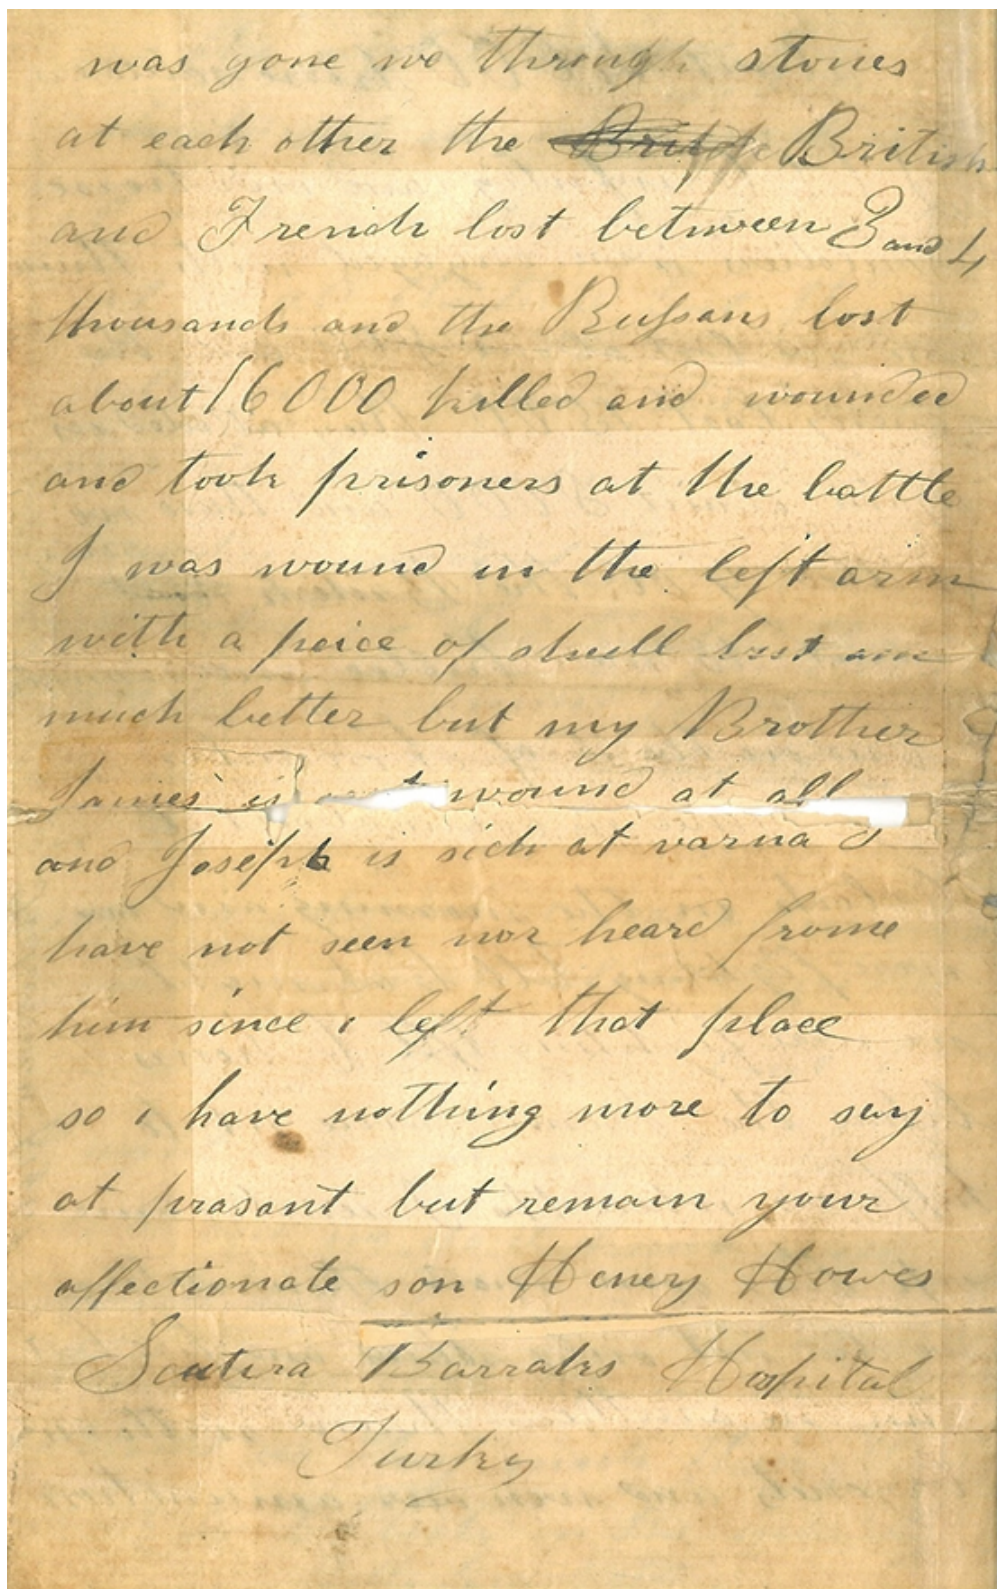 was gone we through stones
at each other the British
and French lost between 3 and 4
thousands and the Rusſans lost
about 16000 killed and wounded
and took prisoners at the battle
I was wound in the left arm
with a peice of shell but am
much better but my Brother
James is not wound at all
and Joseph is sick at varna I
have not seen nor heard frome
him since i left that place
so i have nothing more to say
at prasant but remain your
affectionate son Henery Howes
Scutira Barraks Hospital
Turky